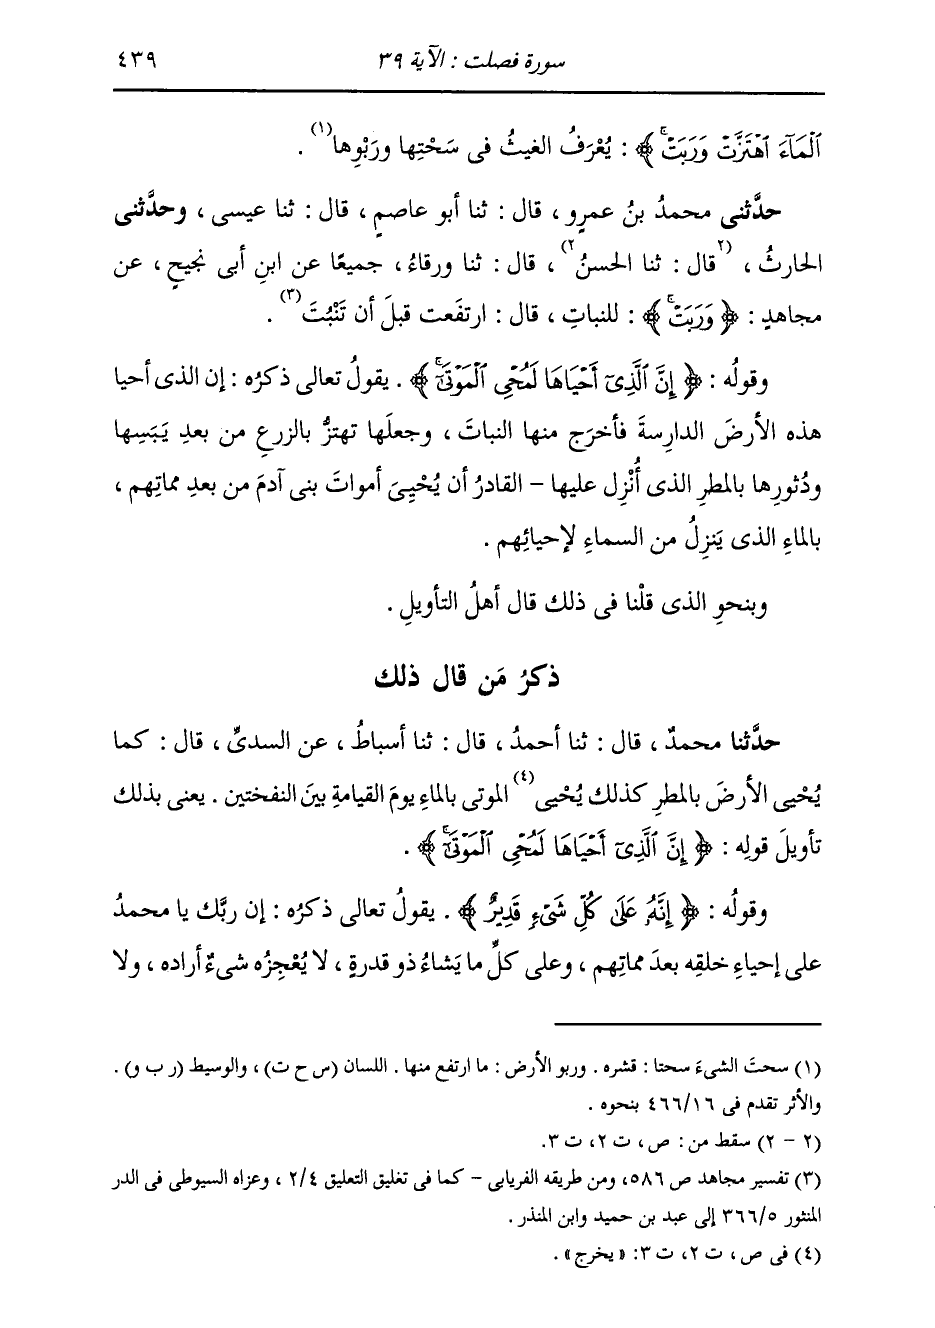 سورة فصلت : الآية ٣٩ ٤٣٩
ٱلْمَآءَ ٱهْتَزَّتْ وَرَبَتْ ۚ﴾ : يُعْرَفُ الغيثُ فى سَحْتِها ورَبْوِها(١) .
حدَّثنى محمدُ بنُ عمرٍو ، قال : ثنا أبو عاصمٍ ، قال : ثنا عيسى ، وحدَّثنى
الحارثُ ، (٢قال : ثنا الحسنُ٢) ، قال : ثنا ورقاءُ ، جميعًا عن ابنِ أبى نجيحٍ ، عن
مجاهدٍ : ﴿ وَرَبَتْ ۚ﴾ : للنباتِ ، قال : ارتفَعت قبلَ أن تَنْبُتَ(٣) .
وقولُه : ﴿ إِنَّ ٱلَّذِىٓ أَحْيَاهَا لَمُحْىِ ٱلْمَوْتَىٰٓ ۚ﴾ . يقولُ تعالى ذكرُه : إن الذى أحيا
هذه الأرضَ الدارِسةَ فأخرَج منها النباتَ ، وجعلَها تهتزُّ بالزرعِ من بعدِ يَبَسِها
ودُثورِها بالمطرِ الذى أُنْزِل عليها – القادرُ أن يُحْيِىَ أمواتَ بنى آدمَ من بعدِ مماتِهم ،
بالماءِ الذى يَنزِلُ من السماءِ لإحيائِهم .
وبنحوِ الذى قلْنا فى ذلك قال أهلُ التأويلِ .
ذكرُ مَن قال ذلك
حدَّثنا محمدٌ ، قال : ثنا أحمدُ ، قال : ثنا أسباطُ ، عن السدىِّ ، قال : كما
يُحْيى الأرضَ بالمطرِ كذلك يُحْيى(٤) الموتى بالماءِ يومَ القيامةِ بينَ النفختين . يعنى بذلك
تأويلَ قولِه : ﴿ إِنَّ ٱلَّذِىٓ أَحْيَاهَا لَمُحْىِ ٱلْمَوْتَىٰٓ ۚ﴾ .
وقولُه : ﴿ إِنَّهُۥ عَلَىٰ كُلِّ شَىْءٍ قَدِيرٌ ﴾ . يقولُ تعالى ذكرُه : إن ربَّك يا محمدُ
على إحياءِ خلقِه بعدَ مماتِهم ، وعلى كلِّ ما يَشاءُ ذو قدرةٍ ، لا يُعْجِزُه شىءٌ أراده ، ولا
(١) سحتَ الشىءَ سحتا : قشره . وربو الأرض : ما ارتفع منها . اللسان (س ح ت) ، والوسيط (ر ب و) .
والأثر تقدم فى ٤٦٦/١٦ بنحوه .
(٢ – ٢) سقط من : ص ، ت ٢، ت ٣.
(٣) تفسير مجاهد ص ٥٨٦، ومن طريقه الفريابى – كما فى تغليق التعليق ٢/٤ ، وعزاه السيوطى فى الدر
المنثور ٣٦٦/٥ إلى عبد بن حميد وابن المنذر .
(٤) فى ص ، ت ٢، ت ٣: «يخرج» .